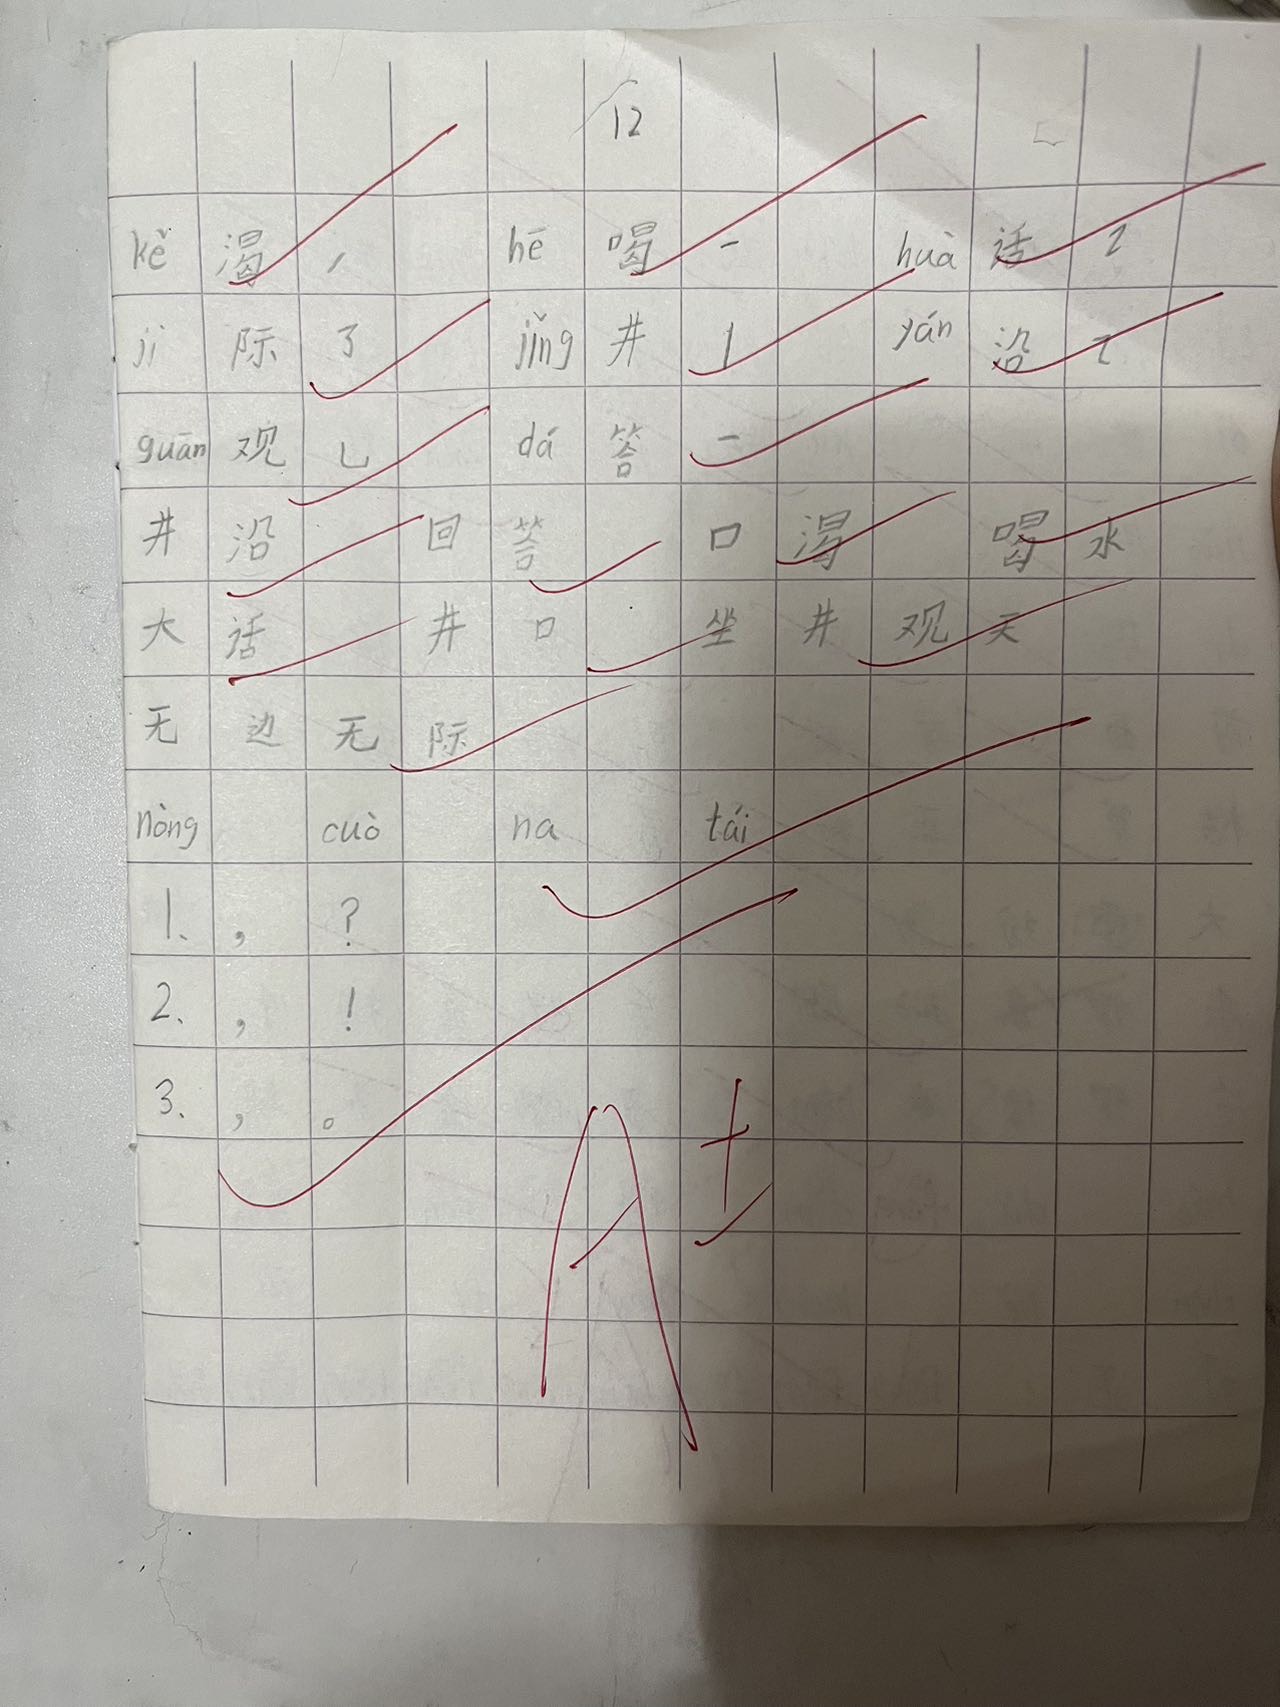 12
kě 渴 ノ hē 喝 一 huà 话 2
jì 际 3 jǐng 井 丨 yán 沿 2
guān 观 乚 dá 答 一
井沿 回答 口渴 喝水
大话 井口 坐井观天
无边无际
nòng cuò na tái
1、 , ?
2、 , !
3、 , 。
A+